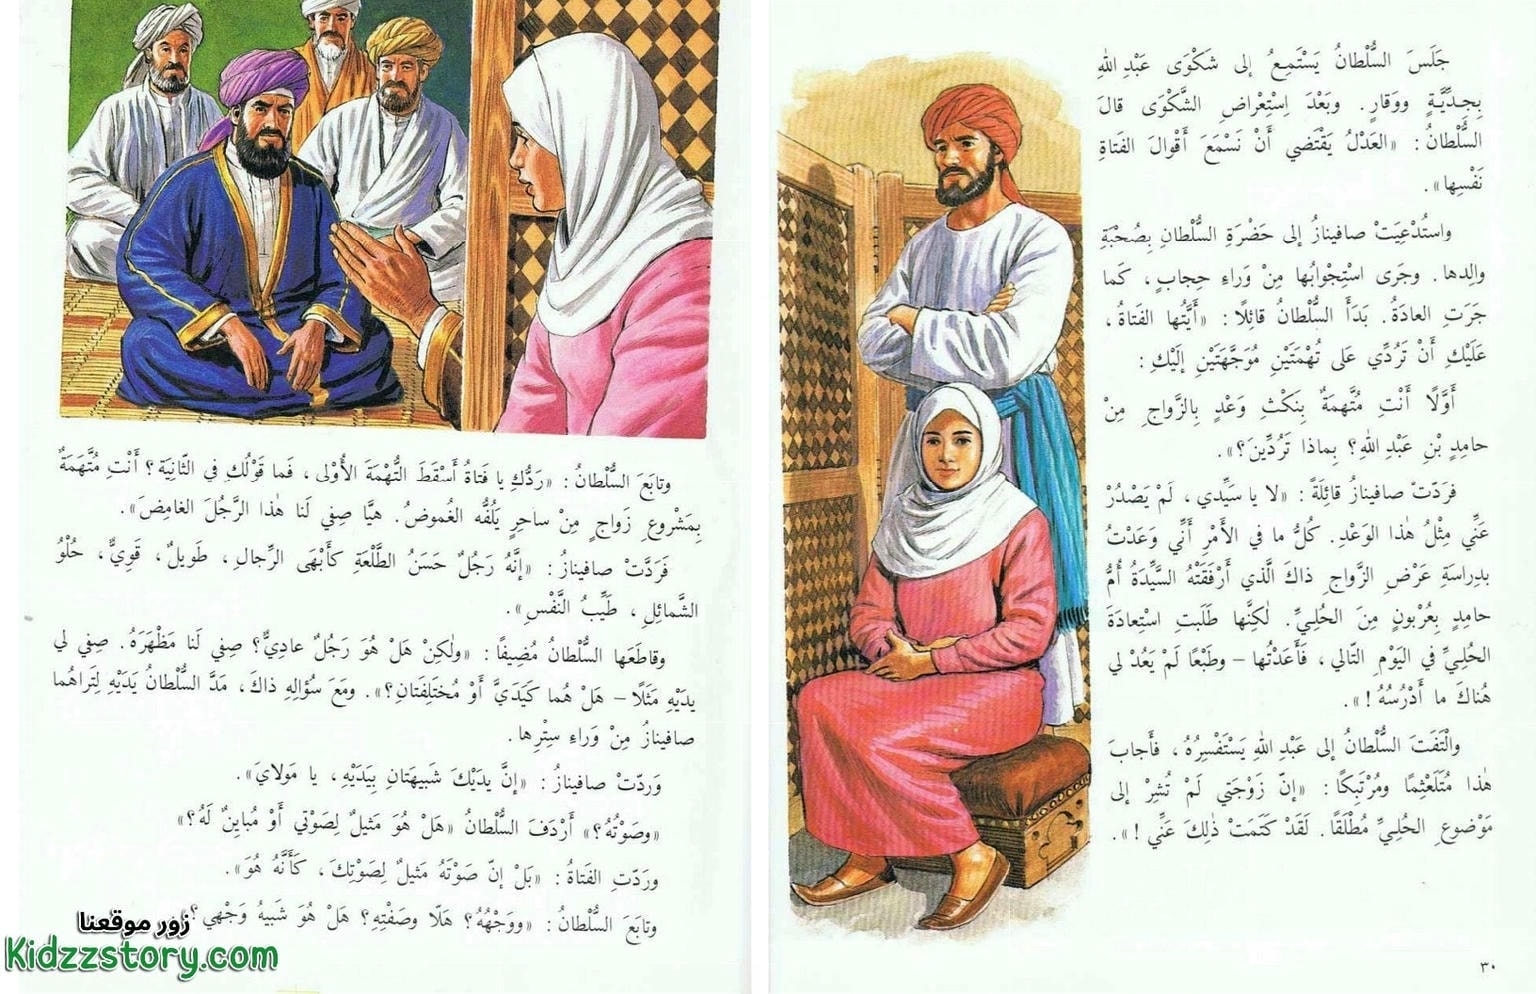 جَلَسَ السُّلْطانُ يَسْتَمِعُ إلى شَكْوَى عَبْدِ اللهِ
بِجِدِّيَّةٍ ووَقارٍ. وبَعْدَ اِسْتِعْراضِ الشَّكْوَى قالَ
السُّلْطانُ: «العَدْلُ يَقْتَضي أَنْ نَسْمَعَ أَقْوالَ الفَتاةِ
نَفْسِها».
واستُدْعِيَتْ صافيناز إلى حَضْرَةِ السُّلْطانِ بِصُحْبَةِ
والِدها. وجَرَى اسْتِجْوابُها مِنْ وَراءِ حِجابٍ، كَما
جَرَتِ العادَةُ. بَدَأَ السُّلْطانُ قائِلًا: «أَيَّتُها الفَتاةُ،
عَلَيْكِ أَنْ تَرُدِّي عَلى تُهْمَتَيْنِ مُوَجَّهَتَيْنِ إلَيْكِ:
أَوَّلًا أَنْتِ مُتَّهَمَةٌ بِنَكْثِ وَعْدٍ بِالزَّواجِ مِنْ
حامِدِ بْنِ عَبْدِ اللهِ؟ بِماذا تَرُدِّينَ؟».
فرَدّتْ صافينازُ قائِلَةً: «لا يا سَيِّدي، لَمْ يَصْدُرْ
عَنِّي مِثْلُ هٰذا الوَعْدِ. كُلُّ ما في الأَمْرِ أَنِّي وَعَدْتُ
بدِراسَةِ عَرْضِ الزَّواجِ ذاكَ الَّذي أَرْفَقَتْهُ السَّيِّدَةُ أُمُّ
حامِدٍ بِعُرْبونٍ مِنَ الحُلِيِّ. لٰكِنَّها طَلَبَتِ اسْتِعادَةَ
الحُلِيِّ في اليَوْمِ التّالي، فَأَعَدْتُها – وطَبْعًا لَمْ يَعُدْ لي
هُناكَ ما أَدْرُسُهُ!».
والْتَفَتَ السُّلْطانُ إلى عَبْدِ اللهِ يَسْتَفْسِرُهُ، فأَجابَ
هٰذا مُتَلَعْثِمًا ومُرْتَبِكًا: «إنّ زَوْجَتي لَمْ تُشِرْ إلى
مَوْضوعِ الحُلِيِّ مُطْلَقًا. لَقَدْ كَتَمَتْ ذٰلِكَ عَنِّي!».
٣٠
وتابَعَ السُّلْطانُ: «رَدُّكِ يا فَتاةُ أَسْقَطَ التُّهْمَةَ الأُوْلى، فَما قَوْلُكِ في الثّانِيَة؟ أَنْتِ مُتَّهَمَةٌ
بِمَشْروعِ زَواجٍ مِنْ ساحرٍ يَلُفُّه الغُموضُ. هيَّا صِفي لَنا هٰذا الرَّجُلَ الغامِضَ».
فَرَدَّتْ صافينازُ: «إنَّهُ رَجُلٌ حَسَنُ الطَّلْعَةِ كأَبْهَى الرِّجالِ، طَويلٌ، قَوِيٌّ، حُلْوُ
الشَّمائِلِ، طَيِّبُ النَّفْسِ».
وقاطَعَها السُّلْطانُ مُضِيفًا: «ولٰكِنْ هَلْ هُوَ رَجُلٌ عادِيٌّ؟ صِفي لَنا مَظْهَرَهُ. صِفي لي
يدَيْهِ مَثَلًا – هَلْ هُما كَيَدَيَّ أَوْ مُختَلِفَتانِ؟». ومَعَ سُؤالِهِ ذاكَ، مَدَّ السُّلْطانُ يَدَيْهِ لِتَراهُما
صافينازُ مِنْ وَراءِ سِتْرِها.
وَردّتْ صافينازُ: «إنَّ يدَيْكَ شَبيهَتانِ بِيَدَيْهِ، يا مَولايَ».
«وصَوْتُهُ؟» أَرْدَفَ السُّلْطانُ «هَلْ هُوَ مَثيلٌ لِصَوْتي أَوْ مُبايِنٌ لَهُ؟»
ورَدّتِ الفَتاةُ: «بَلْ إنّ صَوْتَهُ مَثيلٌ لِصَوْتِكَ، كَأَنَّهُ هُوَ».
وتابَعَ السُّلْطانُ: «ووَجْهُهُ؟ هَلّا وصَفْتِهِ؟ هَلْ هُوَ شَبيهُ وَجْهي؟
زور موقعنا
Kidzzstory.com